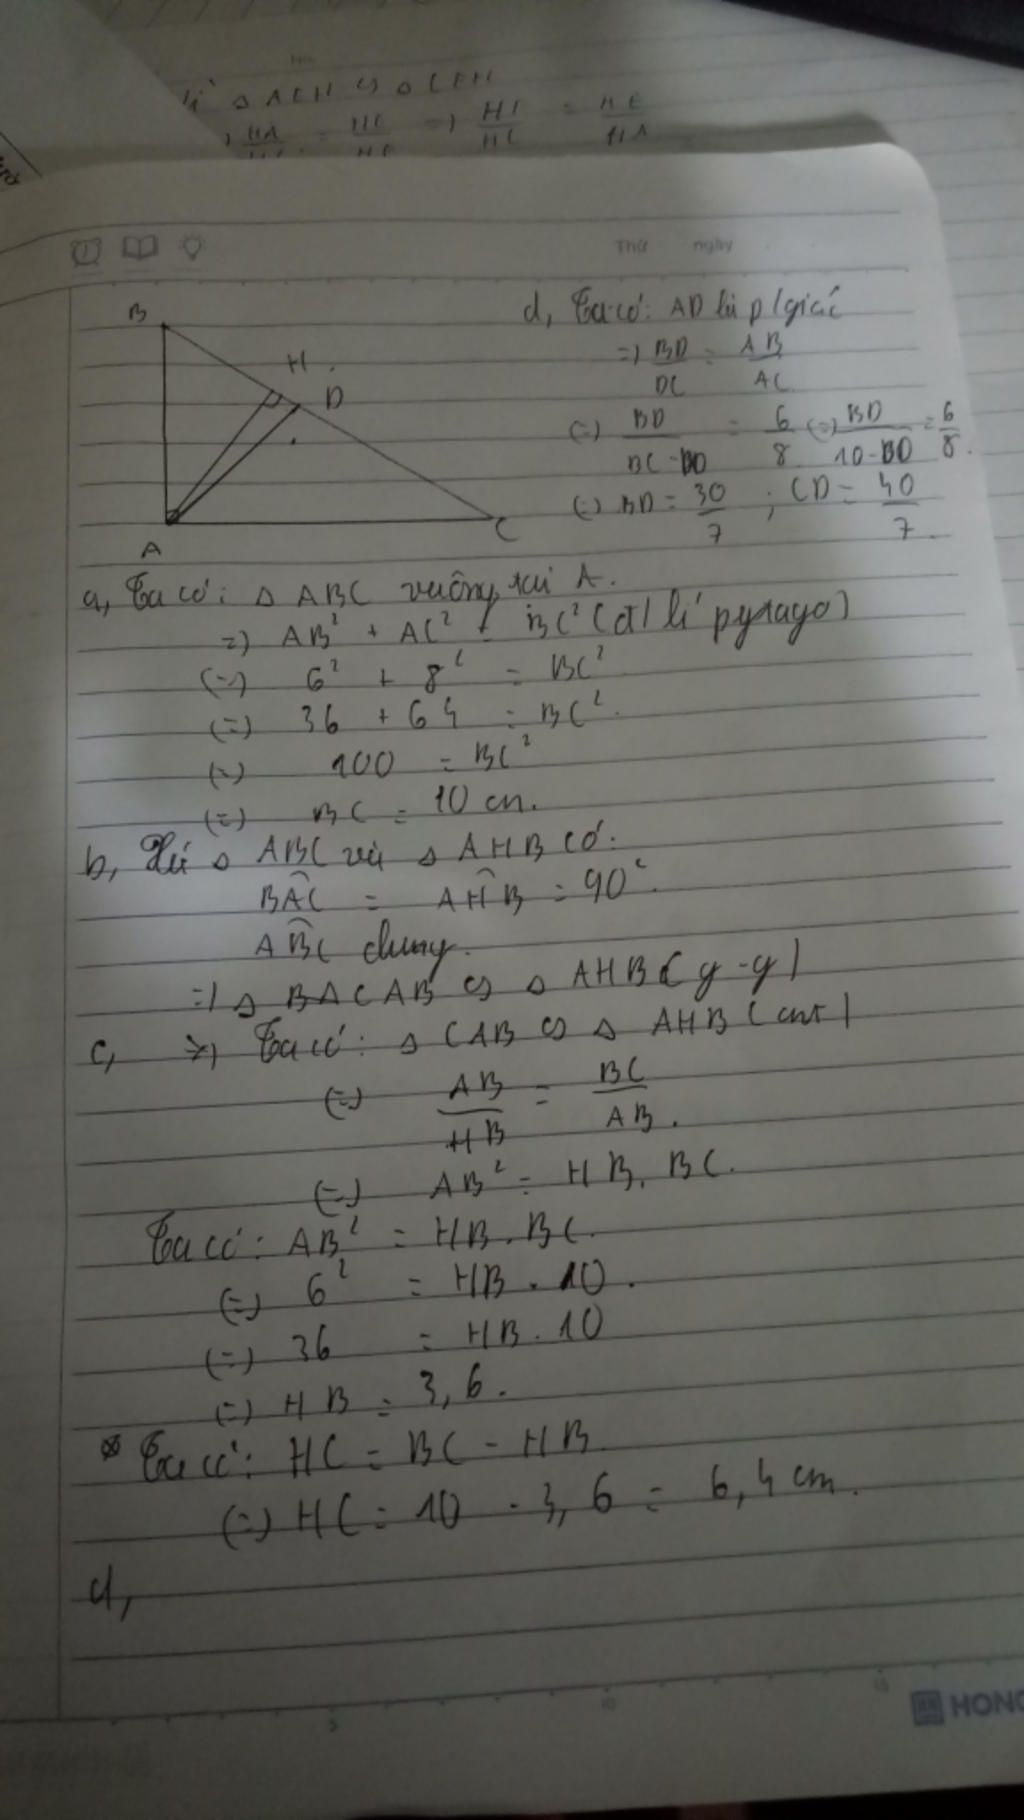 Δ ACH ∽ Δ CEH
HA HC => HC = HE
HC HA
Thứ ngày
B
H
D
A
C
d, Ta có: AD là p/giác
=> BD/DC = AB/AC
(=) BD/(BC-BD) = 6/8 (=) BD/(10-BD) = 6/8.
(=) BD = 30/7 ; CD = 40/7.
a, Ta có: Δ ABC vuông tại A.
=> AB² + AC² = BC² (đ/lí pytago)
(=) 6² + 8² = BC²
(=) 36 + 64 = BC².
(=) 100 = BC²
(=) BC = 10 cm.
b, Xét Δ ABC và Δ AHB có:
BÂC = AĤB = 90°.
AB̂C chung.
=> Δ CAB ∽ Δ AHB (g-g)
c, Ta có: Δ CAB ∽ Δ AHB (cmt)
(=) AB/HB = BC/AB.
(=) AB² = HB. BC.
Ta có: AB² = HB. BC.
(=) 6² = HB. 10.
(=) 36 = HB. 10
(=) HB = 3,6.
Ta có: HC = BC - HB
(=) HC = 10 - 3,6 = 6,4 cm.
d,
5 10 15
HONG